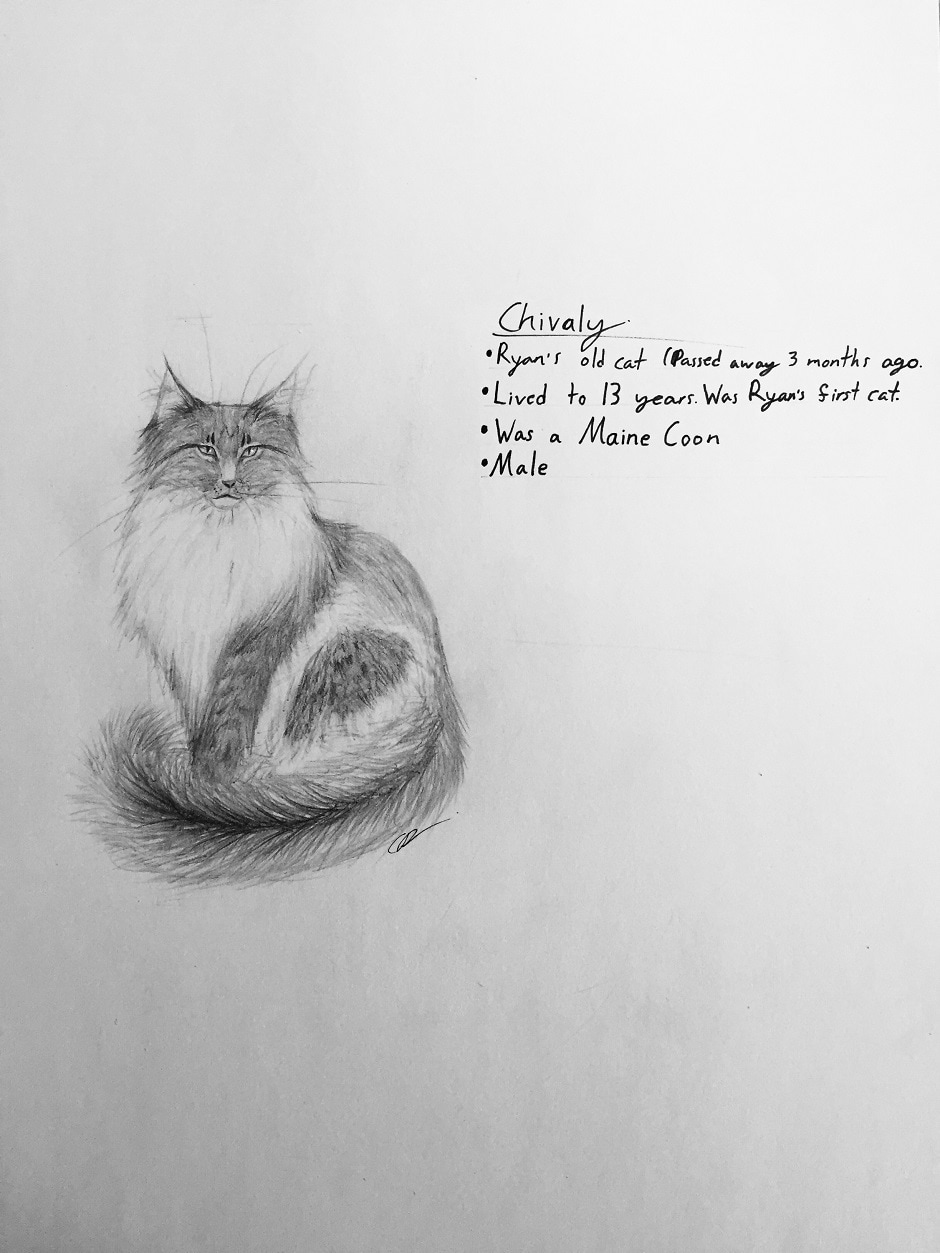 Chivaly
•Ryan's old cat (Passed away 3 months ago.
•Lived to 13 years. Was Ryan's first cat.
•Was a Maine Coon
•Male